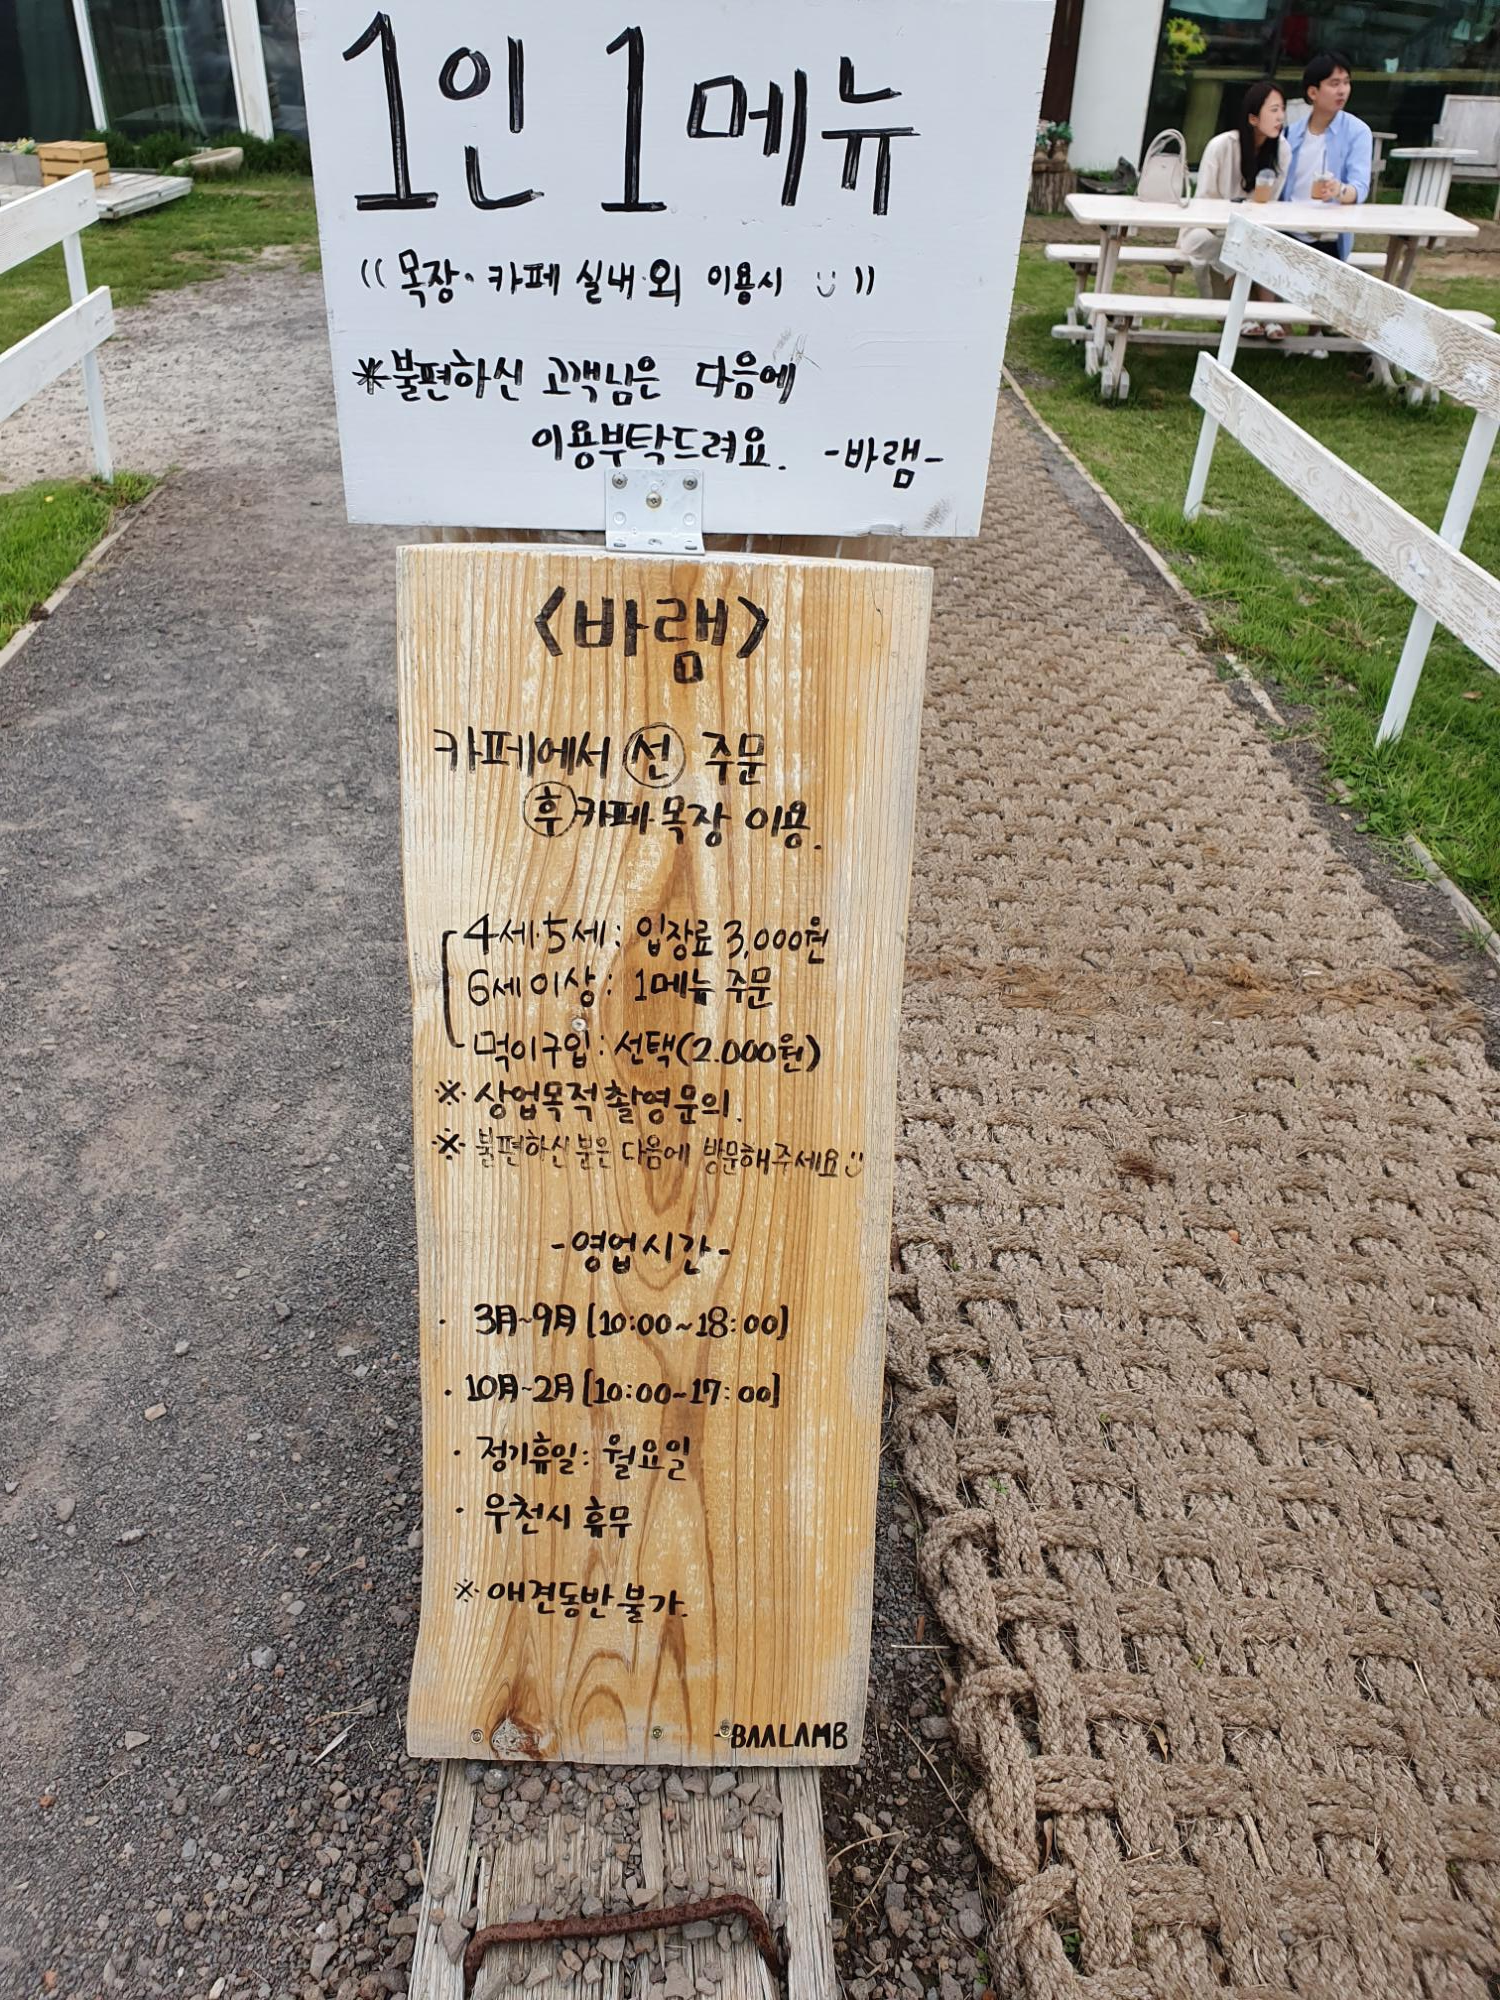 1인 1메뉴
(( 목장·카페 실내·외 이용시 ))
*불편하신 고객님은 다음에
이용부탁드려요. -바램-
<바램>
카페에서 선 주문
후 카페·목장 이용.
4세·5세: 입장료 3,000원
6세이상: 1메뉴 주문
먹이구입: 선택(2.000원)
※ 상업목적촬영문의.
※ 불편하신분은 다음에 방문해주세요
-영업시간-
· 3月~9月 [10:00~18:00]
· 10月~2月 [10:00~17:00]
· 정기휴일: 월요일
· 우천시 휴무
※ 애견동반 불가.
-BAALAMB